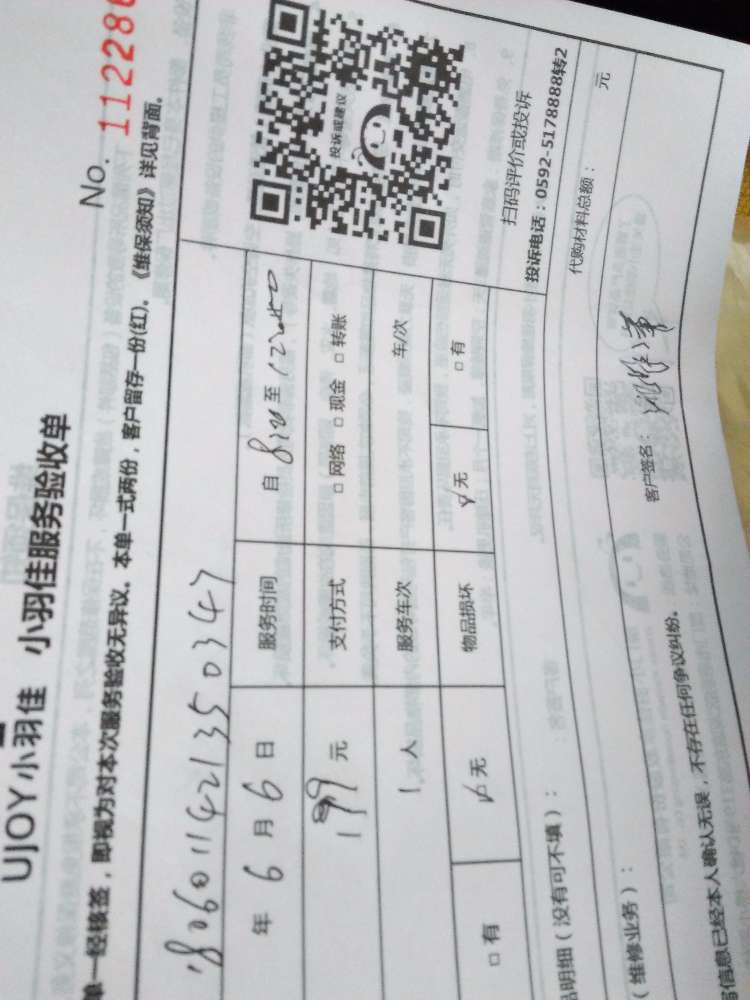 No. 112286
UJOY小羽佳 小羽佳服务验收单
单一经核签，即视为对本次服务验收无异议。本单一式两份，客户留存一份(红)。《维保须知》详见背面。
1806011421350347
年 6 月 6 日 服务时间 自 至
199 元 支付方式 □ 网络 □ 现金 □ 转账
1 人 服务车次 车/次
□ 有 ☑ 无 物品损坏 ☑ 无 □ 有
投诉或建议
扫码评价或投诉
投诉电话：0592-5178888转2
明细（没有可不填）：
代购材料总额： 元
（维修业务）：
信息已经本人确认无误，不存在任何争议纠纷。
客户签名：